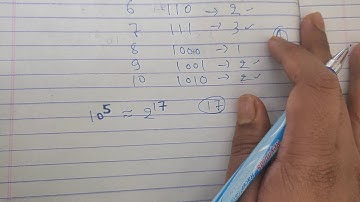 6 110 → 2 ✓
7 111 → 3 ✓
8 1000 → 1
9 1001 → 2 ✓
10 1010 → 2 ✓
10⁵ ≈ 2¹⁷ 17